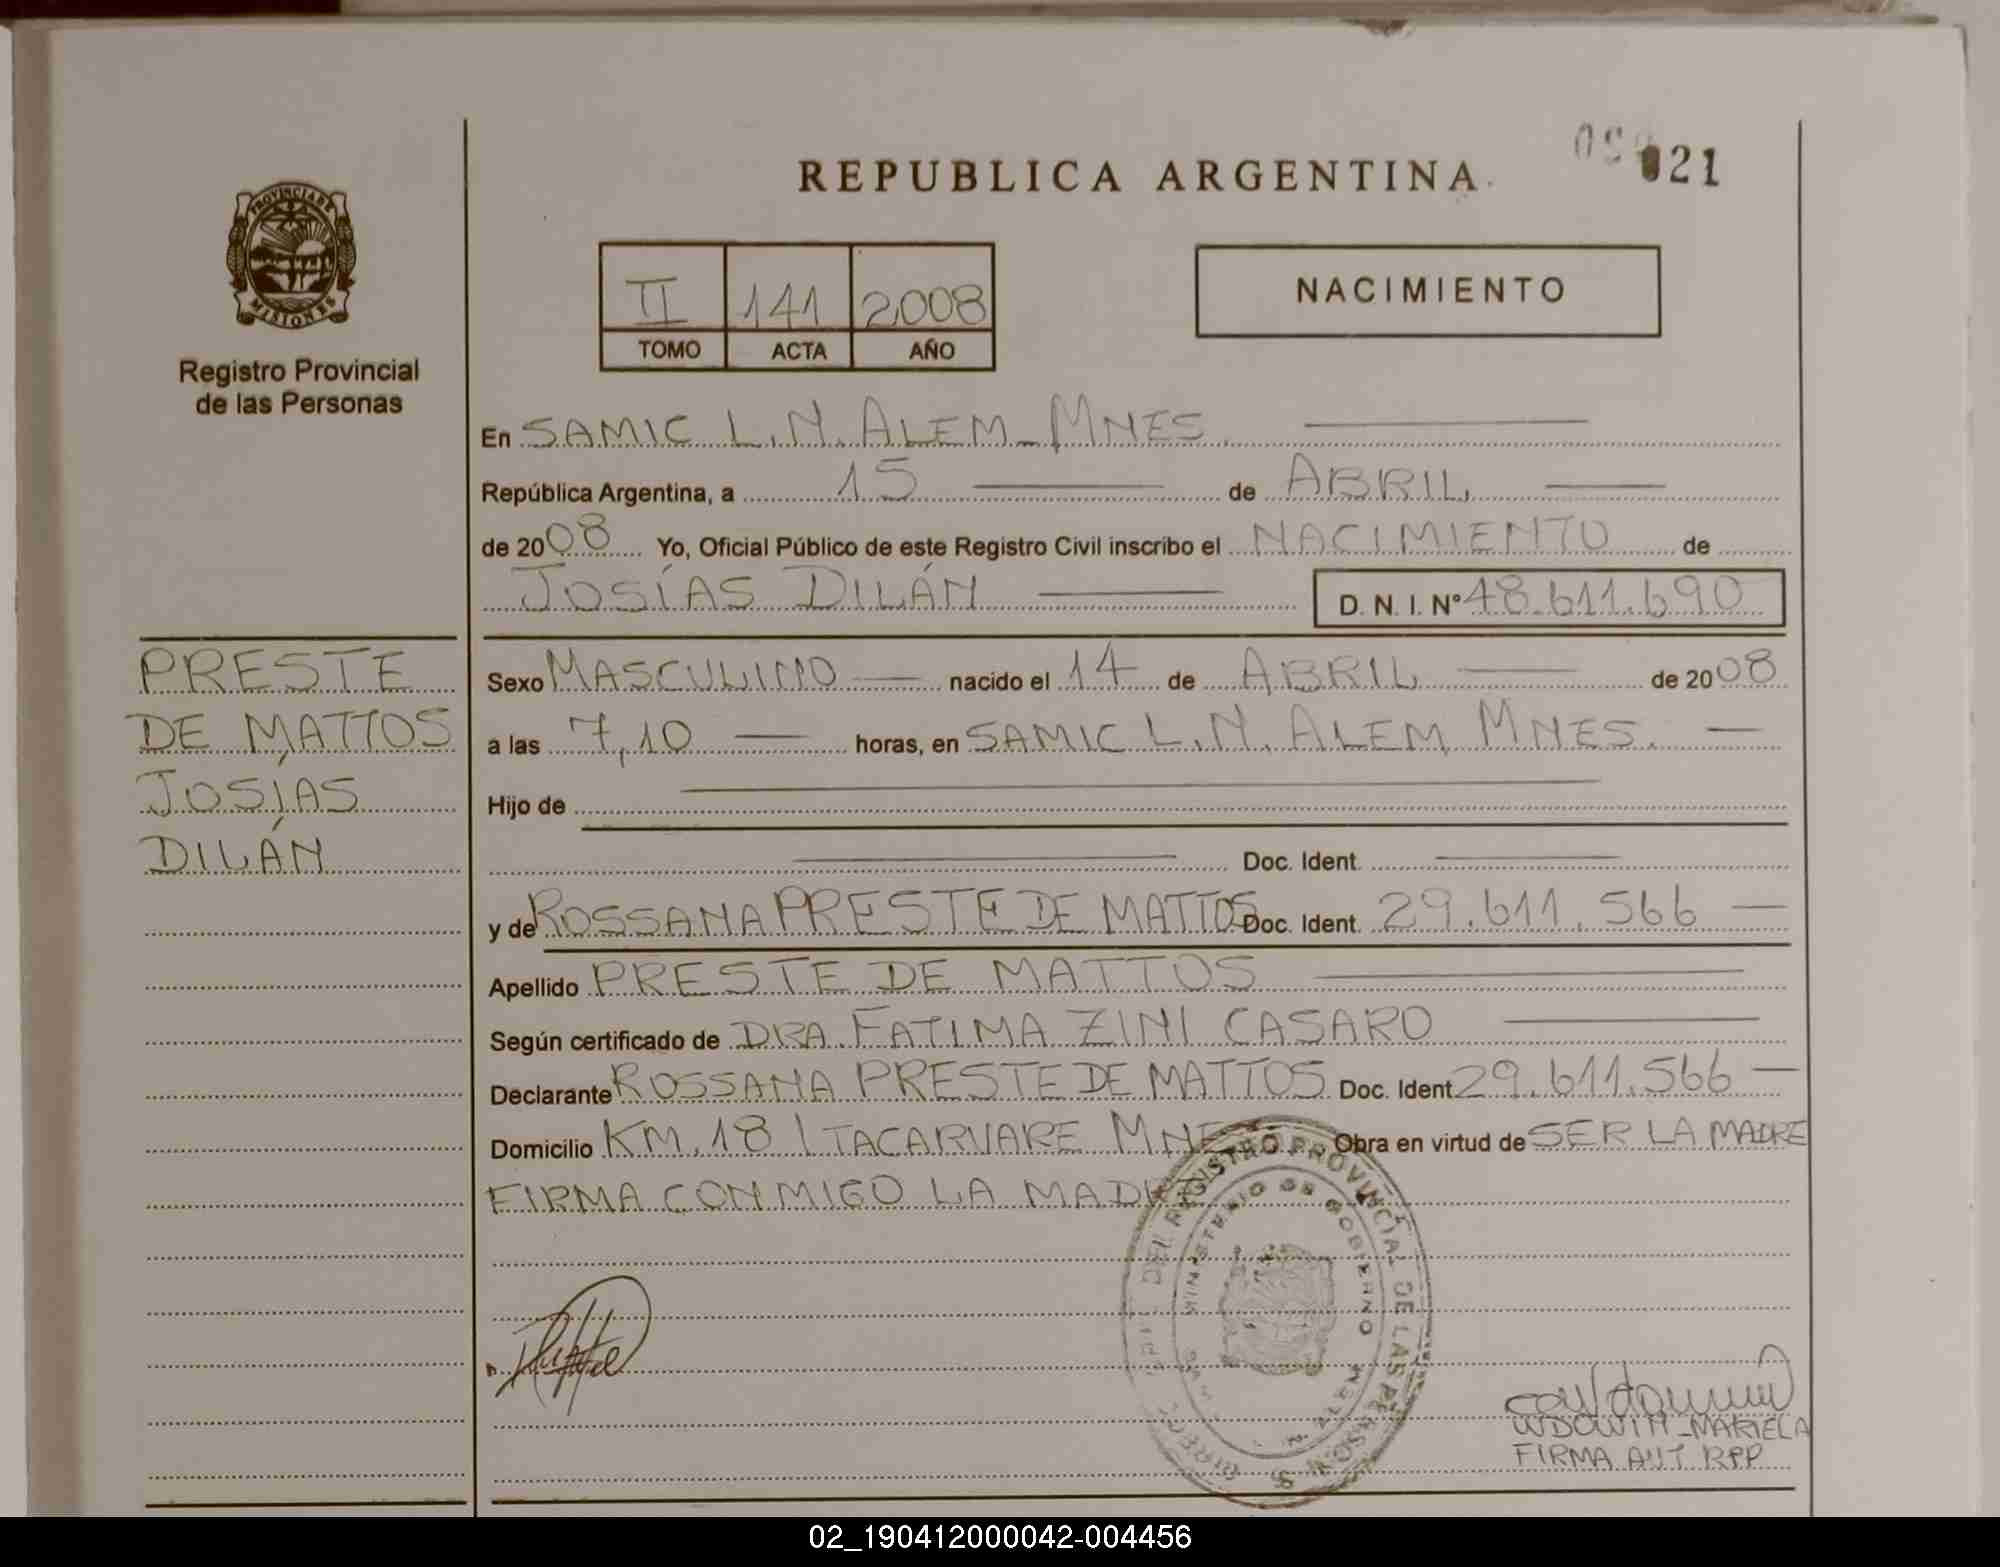 REPUBLICA ARGENTINA
021
PROVINCIA DE
MISIONES
Registro Provincial
de las Personas
II 141 2008
TOMO ACTA AÑO
NACIMIENTO
En SAMIC L.N. ALEM - MNES.
República Argentina, a 15 de ABRIL
de 2008 Yo, Oficial Público de este Registro Civil inscribo el NACIMIENTO de
JOSÍAS DILÁN D. N. I. Nº 48.611.690
PRESTE
DE MATTOS
JOSÍAS
DILÁN
Sexo MASCULINO nacido el 14 de ABRIL de 2008
a las 7,10 horas, en SAMIC L.N. ALEM MNES.
Hijo de
Doc. Ident.
y de ROSSANA PRESTE DE MATTOS Doc. Ident. 29.611.566
Apellido PRESTE DE MATTOS
Según certificado de DRA. FATIMA ZINI CASARO
Declarante ROSSANA PRESTE DE MATTOS Doc. Ident 29.611.566
Domicilio KM. 18 ITACARUARE MNES Obra en virtud de SER LA MADRE
FIRMA CONMIGO LA MADRE
DEL REGISTRO PROVINCIAL DE LAS PERSONAS
MINISTERIO DE GOBIERNO
N. ALEM
MARIELA
FIRMA AUT. RPP
02_190412000042-004456